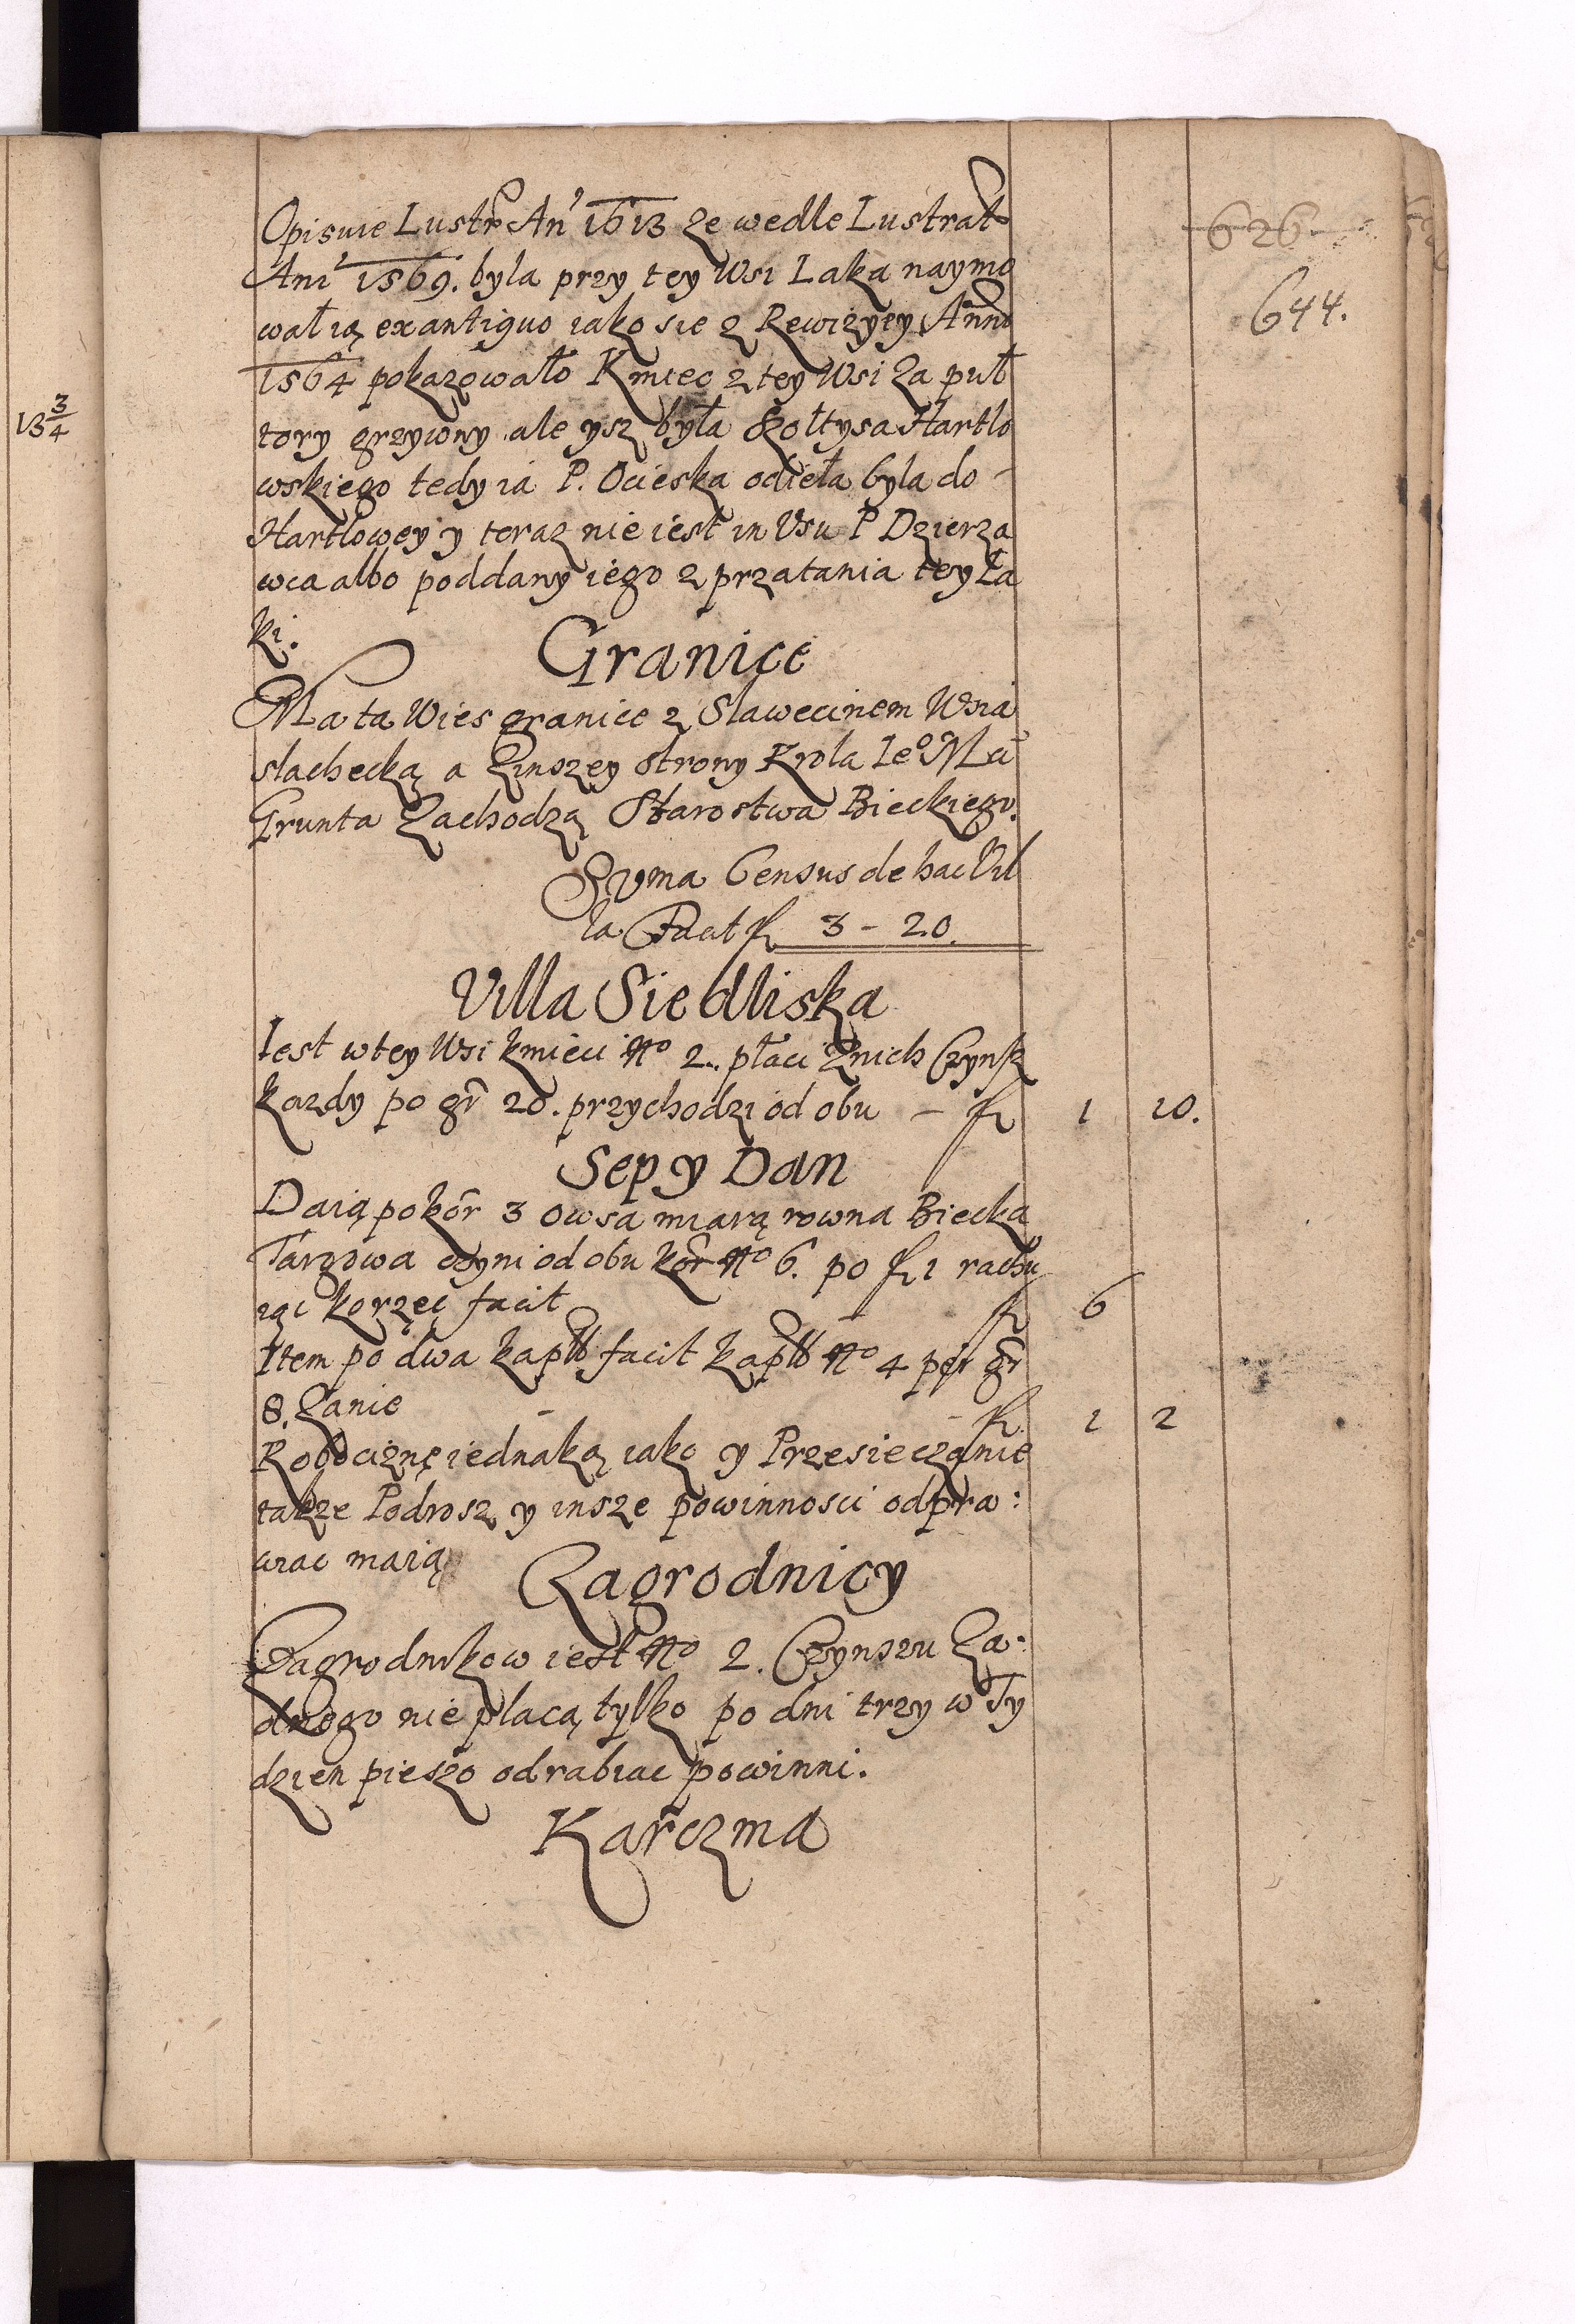 626
644.
13 3/4
Opisuie Lustr An' 1613 ze wedle Lustrat
Ani' 1569. byla przy tey Wsi Laka naymo
wał ią ex antiquo iako sie z Rewizyey Anno
1564 pokazowało Kmiec z tey Wsi za puł
tory grzywny ale ysz była Szołtysa Hartlo
wskiego tedy ia P. Ocieska odieła byla do -
Hartlowey y teraz nie iest in Vsu P Dzierza
wca albo poddany iego z przatania tey Ła
ki.
Granice
Ma ta Wies granice z Slawecinem Wsia
slachecką a Zinszey strony Krola Ieo Mci
Grunta Zachodzą Starostwa Bieckiego.
Suma Census de hac Vil
la Facit fl 3 - 20.
Villa Siedliska
Iest w tey Wsi kmieci No 2. płaci Znich Czynsz
kazdy po gr 20. przychodzi od obu - fl 1 10.
Sep y Dan
Daią po kor 3 owsa miarą rowna Biecką
Targowa czyni od obu kor No 6. po fl 1 rachu
iąc korzec facit fl 6
Item po dwa kapł facit kapł No 4 per gr
8. Zanie - - fl 1 2
Robociznę iednaką iako y Przesieczanie
takze Podrosz y insze powinnosci odpra:
wiac maią
Zagrodnicy
Zagrodnikow iest No 2. Czynszu Za:
dnego nie placą tylko po dni trzy w Ty
dzien pieszo odrabiac powinni.
Karczma